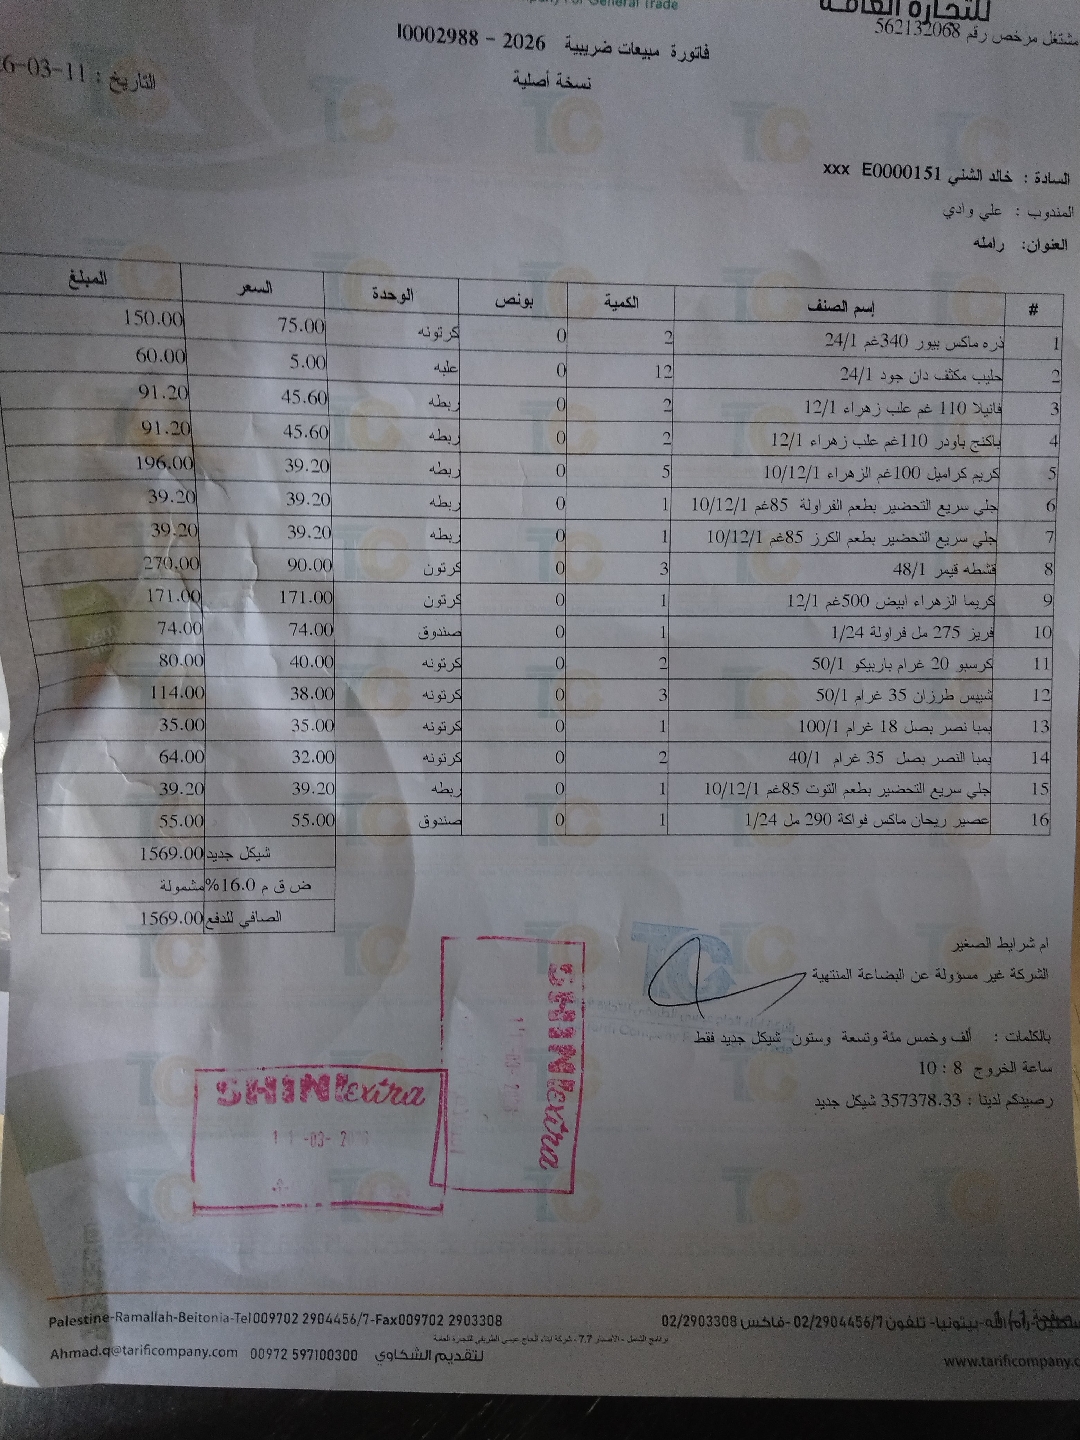 للتجارة العامة
General Trade
مشتغل مرخص رقم 562132068
فاتورة مبيعات ضريبية 2026 - I0002988
نسخة أصلية
التاريخ : 6-03-11
السادة : خالد الشني E0000151 xxx
المندوب : علي وادي
العنوان: رامله
# إسم الصنف الكمية بونص الوحدة السعر المبلغ
1 ذره ماكس بيور 340غم 24/1 2 0 كرتونه 75.00 150.00
2 حليب مكثف دان جود 24/1 12 0 علبه 5.00 60.00
3 فانيلا 110 غم علب زهراء 12/1 2 0 ربطه 45.60 91.20
4 باكنج باودر 110غم علب زهراء 12/1 2 0 ربطه 45.60 91.20
5 كريم كراميل 100غم الزهراء 10/12/1 5 0 ربطه 39.20 196.00
6 جلي سريع التحضير بطعم الفراولة 85غم 10/12/1 1 0 ربطه 39.20 39.20
7 جلي سريع التحضير بطعم الكرز 85غم 10/12/1 1 0 ربطه 39.20 39.20
8 قشطه قيمر 48/1 3 0 كرتون 90.00 270.00
9 كريما الزهراء ابيض 500غم 12/1 1 0 كرتون 171.00 171.00
10 فريز 275 مل فراولة 1/24 1 0 صندوق 74.00 74.00
11 كرسبو 20 غرام باربيكو 50/1 2 0 كرتونه 40.00 80.00
12 شيبس طرزان 35 غرام 50/1 3 0 كرتونه 38.00 114.00
13 بمبا نصر بصل 18 غرام 100/1 1 0 كرتونه 35.00 35.00
14 بمبا النصر بصل 35 غرام 40/1 2 0 كرتونه 32.00 64.00
15 جلي سريع التحضير بطعم التوت 85غم 10/12/1 1 0 ربطه 39.20 39.20
16 عصير ريحان ماكس فواكة 290 مل 1/24 1 0 صندوق 55.00 55.00
شيكل جديد 1569.00
ض ق م 16.0% مشمولة
الصافي للدفع 1569.00
ام شرايط الصغير
الشركة غير مسؤولة عن البضاعة المنتهية
بالكلمات : ألف وخمس مئة وتسعة وستون شيكل جديد فقط
ساعة الخروج 8 : 10
رصيدكم لديتا : 357378.33 شيكل جديد
SHINI extra
SHINI extra
11-03-
صفحة 1 / 1
Palestine-Ramallah-Beitonia-Tel009702 2904456/7-Fax009702 2903308
رام الله-بيتونيا- تلفون 02/2904456/7 -فاكس 02/2903308
برنامج الشامل - الاصدار 7.7 - شركة ابناء الحاج عيسى الطريفي للتجارة العامة
Ahmad.q@tarificompany.com 00972 597100300 لتقديم الشكاوي
www.tarificompany.c